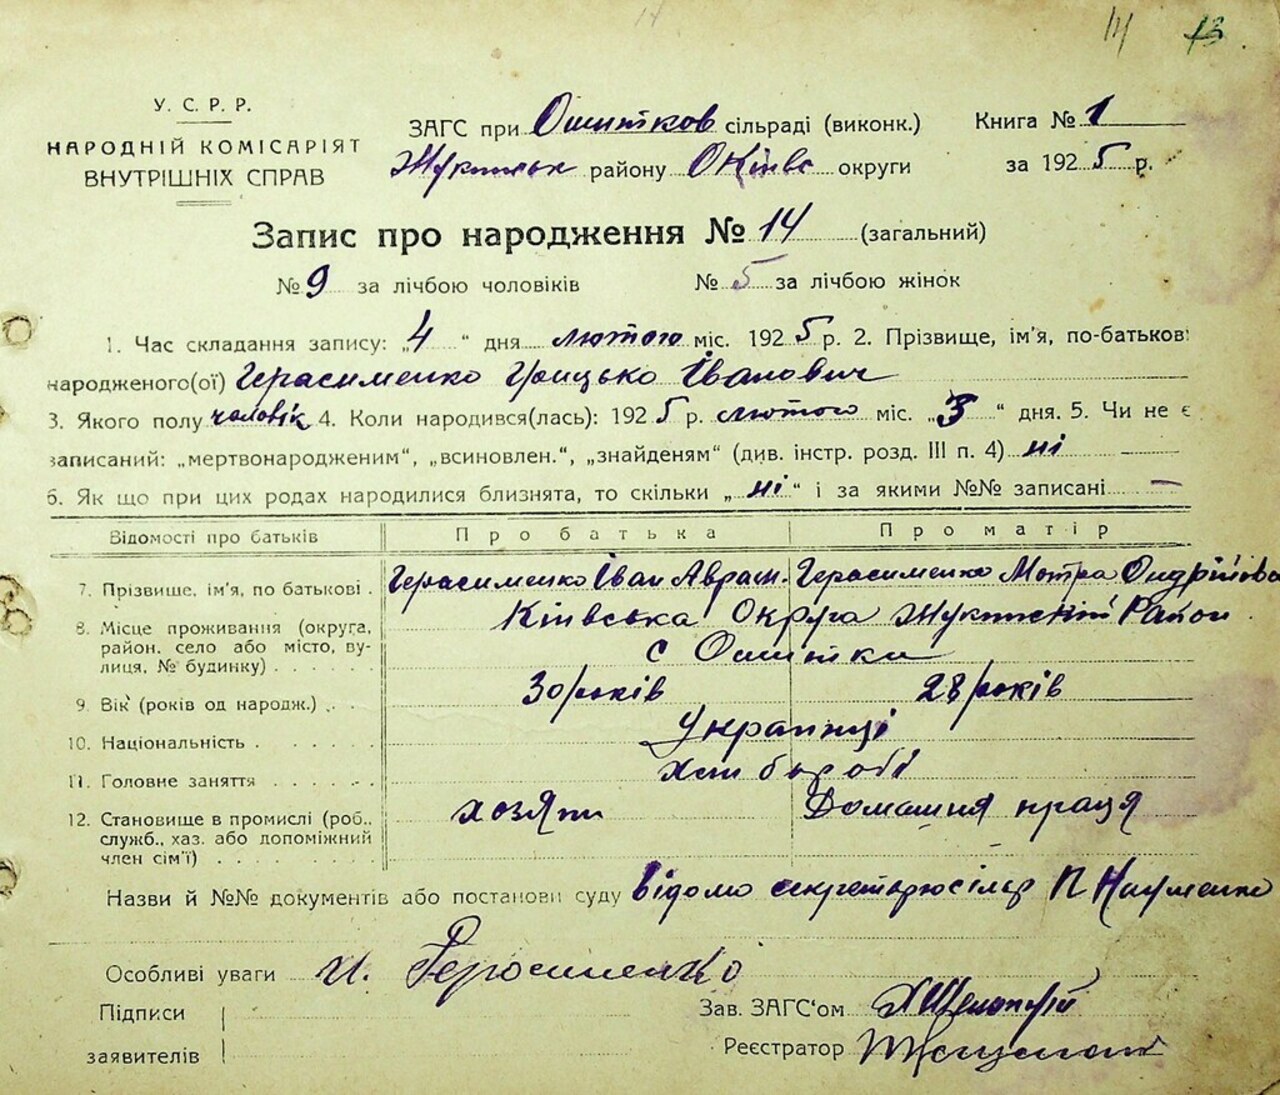 14
14 13
У. С. Р. Р.
НАРОДНІЙ КОМІСАРІЯТ
ВНУТРІШНІХ СПРАВ
ЗАГС при Ошитков сільраді (виконк.)
Жукинськ району Окіівс округи
Книга № 1
за 1925 р.
Запис про народження № 14 (загальний)
№ 9 за лічбою чоловіків № 5 за лічбою жінок
1. Час складання запису: „4“ дня лютого міс. 1925 р. 2. Прізвище, ім'я, по-батькові
народженого(ої) Герасименко Грицько Іванович
3. Якого полу чоловік 4. Коли народився(лась): 1925 р. лютого міс. „3“ дня. 5. Чи не є
записаний: „мертвонародженим“, „всиновлен.“, „знайденям“ (див. інстр. розд. III п. 4) ні
6. Як що при цих родах народилися близнята, то скільки „ні“ і за якими №№ записані —
Відомості про батьків Про батька Про матір
7. Прізвище, ім'я, по батькові . Герасименко Іван Аврам. Герасименко Мотра Ондріївна
8. Місце проживання (округа, район. село або місто, вулиця, № будинку) Кіівська Округа Жукинскій Район
с Ошитки
9. Вік (років од народж.) 30 років 28 років
10. Національність Украінці
11. Головне заняття Хліборобі
12. Становище в промислі (роб., служб., хаз. або допоміжний член сім'ї) хозяин Домашня праця
Назви й №№ документів або постанови суду Відомо секретарю сільр П Науменко
Особливі уваги И. Герасименко
Підписи
заявителів
Зав. ЗАГС'ом
Реєстратор